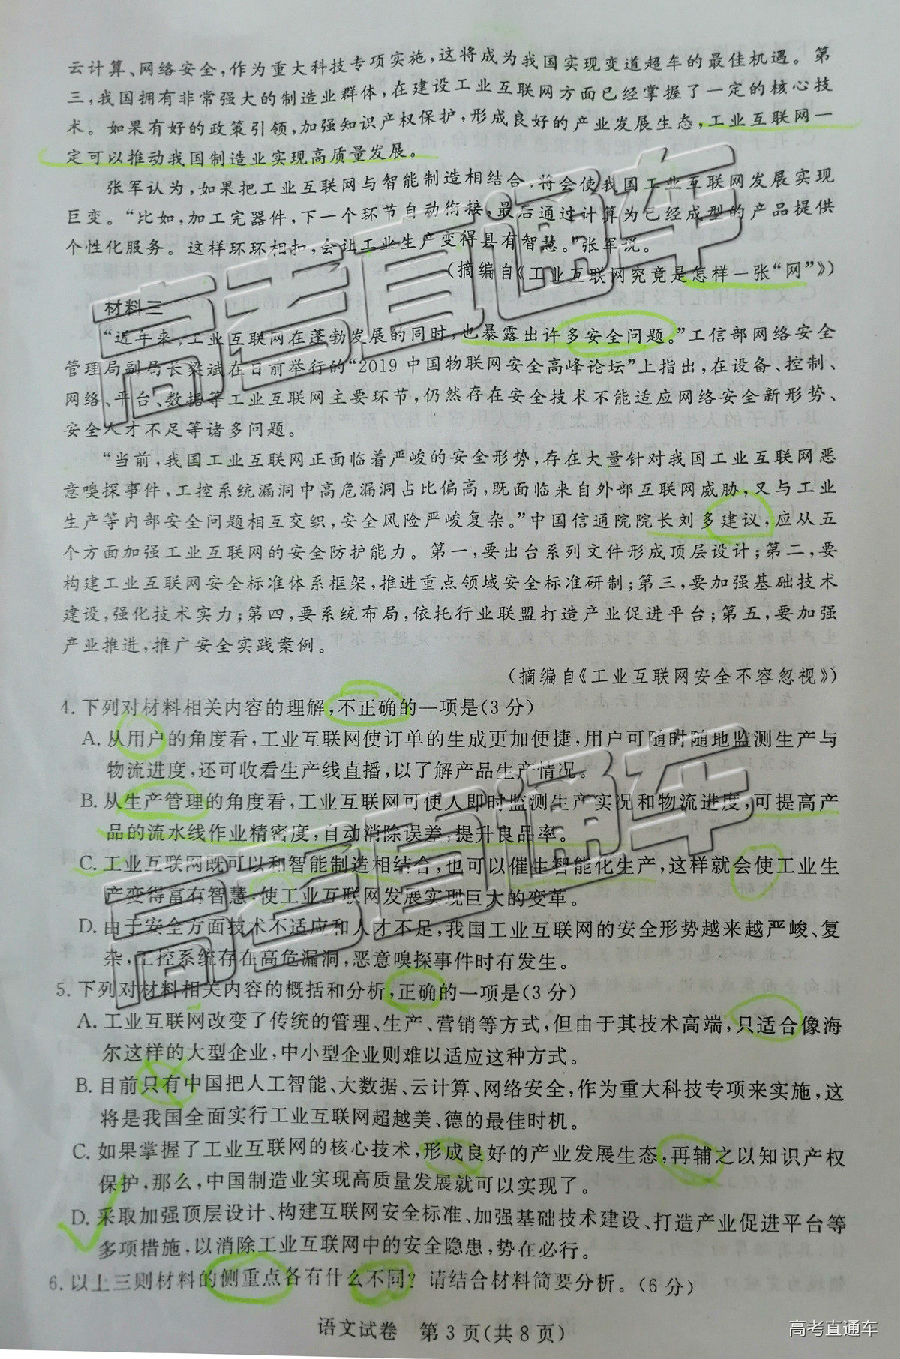 云计算、网络安全,作为重大科技专项实施,这将成为我国实现变道超车的最佳机遇。第
三,我国拥有非常强大的制造业群体,在建设工业互联网方面已经掌握了一定的核心技
术。如果有好的政策引领,加强知识产权保护,形成良好的产业发展生态,工业互联网一
定可以推动我国制造业实现高质量发展。
张军认为,如果把工业互联网与智能制造相结合,将会使我国工业互联网发展实现
巨变。“比如,加工完器件,下一个环节自动衔接,最后通过计算为已经成型的产品提供
个性化服务。这样环环相扣,会让工业生产变得具有智慧。”张军说。
(摘编自《工业互联网究竟是怎样一张“网”》)
材料三
“近年来,工业互联网在蓬勃发展的同时,也暴露出许多安全问题。”工信部网络安全
管理局副局长梁斌在日前举行的“2019中国物联网安全高峰论坛”上指出,在设备、控制、
网络、平台、数据等工业互联网主要环节,仍然存在安全技术不能适应网络安全新形势、
安全人才不足等诸多问题。
“当前,我国工业互联网正面临着严峻的安全形势,存在大量针对我国工业互联网恶
意嗅探事件,工控系统漏洞中高危漏洞占比偏高,既面临来自外部互联网威胁,又与工业
生产等内部安全问题相互交织,安全风险严峻复杂。”中国信通院院长刘多建议,应从五
个方面加强工业互联网的安全防护能力。第一,要出台系列文件形成顶层设计;第二,要
构建工业互联网安全标准体系框架,推进重点领域安全标准研制;第三,要加强基础技术
建设,强化技术实力;第四,要系统布局,依托行业联盟打造产业促进平台;第五,要加强
产业推进,推广安全实践案例。
(摘编自《工业互联网安全不容忽视》)
4. 下列对材料相关内容的理解,不正确的一项是(3分)
A. 从用户的角度看,工业互联网使订单的生成更加便捷,用户可随时随地监测生产与
物流进度,还可收看生产线直播,以了解产品生产情况。
B. 从生产管理的角度看,工业互联网可使人即时监测生产实况和物流进度,可提高产
品的流水线作业精密度,自动消除误差,提升良品率。
C. 工业互联网既可以和智能制造相结合,也可以催生智能化生产,这样就会使工业生
产变得富有智慧,使工业互联网发展实现巨大的变革。
D. 由于安全方面技术不适应和人才不足,我国工业互联网的安全形势越来越严峻、复
杂,工控系统存在高危漏洞,恶意嗅探事件时有发生。
5. 下列对材料相关内容的概括和分析,正确的一项是(3分)
A. 工业互联网改变了传统的管理、生产、营销等方式,但由于其技术高端,只适合像海
尔这样的大型企业,中小型企业则难以适应这种方式。
B. 目前只有中国把人工智能、大数据、云计算、网络安全,作为重大科技专项来实施,这
将是我国全面实行工业互联网超越美、德的最佳时机。
C. 如果掌握了工业互联网的核心技术,形成良好的产业发展生态,再辅之以知识产权
保护,那么,中国制造业实现高质量发展就可以实现了。
D. 采取加强顶层设计、构建互联网安全标准、加强基础技术建设、打造产业促进平台等
多项措施,以消除工业互联网中的安全隐患,势在必行。
6. 以上三则材料的侧重点各有什么不同?请结合材料简要分析。(6分)
语文试卷 第3页(共8页)
高考直通车
高考直通车
高考直通车